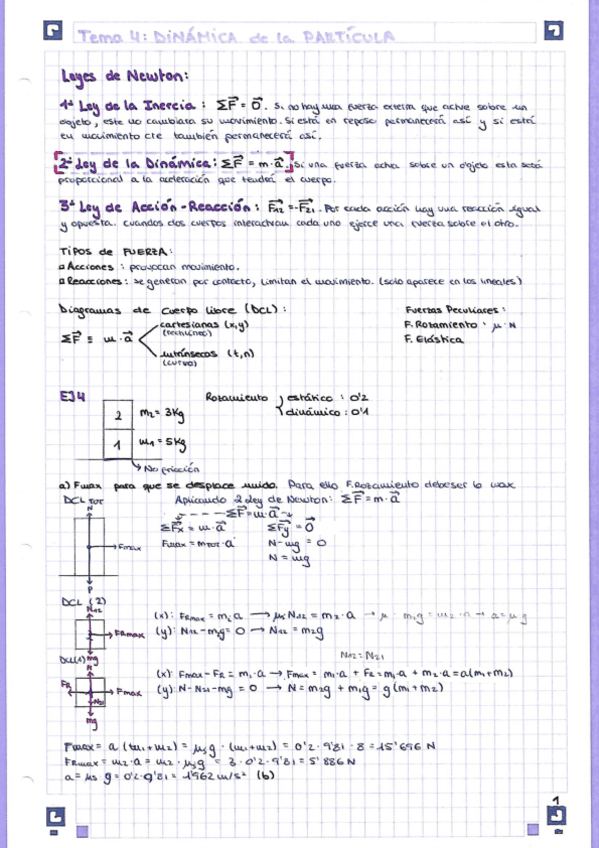 Tema 4: DINÁMICA de la PARTÍCULA
Leyes de Newton:
1ª Ley de la Inercia : ΣF⃗ = 0⃗. Si no hay una fuerza externa que actue sobre un
objeto, este no cambiara su movimiento. Si está en reposo permanecerá así y si está
en movimiento cte también permanecerá así.
2ª Ley de la Dinámica: ΣF⃗ = m·a⃗. Si una fuerza actua sobre un objeto esta será
proporcional a la aceleración que tendrá el cuerpo.
3ª Ley de Acción-Reacción : F⃗12=-F⃗21. Por cada acción hay una reacción igual
y opuesta. Cuando dos cuerpos interactuan cada uno ejerce una fuerza sobre el otro.
TIPOS de FUERZA:
Acciones : provocan movimiento.
Reacciones : se generan por contacto, limitan el movimiento. (solo aparece en los lineales)
Diagramas de cuerpo libre (DCL) :
Fuerzas Peculiares :
cartesianas (x,y)
(rectilíneo)
F. Rozamiento : μ·N
ΣF⃗ = m·a⃗
F. Elástica
intrínsecos (t,n)
(curvo)
EJ4
Rozamiento
estático : 0'2
dinámico : 0'1
2
m2 = 3Kg
1
m1 = 5Kg
No fricción
a) Fmax para que se desplace unido. Para ello F.Rozamiento debe ser la max
DCL TOT
Aplicando 2 ley de Newton: ΣF⃗ = m·a⃗
N
ΣF⃗=m·a⃗
ΣF⃗x = m·a⃗
ΣF⃗y = 0⃗
Fmax
Fmax = mTOT·a
N-mg = 0
N = mg
P
DCL (2)
N12
FRmax
mg
(x): FRmax = m2·a → μs N12 = m2·a → μ · m2g = m2·a → a = μg
(y): N12-m2g = 0 → N12 = m2g
N12 = N21
DCL(1)
N
FR
Fmax
N21
mg
(x): Fmax-FR = m1·a → Fmax = m1·a + FR = m1·a + m2·a = a(m1+m2)
(y): N-N21-mg = 0 → N = m2g + m1g = g(m1+m2)
Fmax = a (m1+m2) = μsg · (m1+m2) = 0'2·9'81·8 = 15'696 N
FRmax = m2·a = m2·μsg = 3·0'2·9'81 = 5'886 N
a = μs·g = 0'2·9'81 = 1'962 m/s² (b)
1